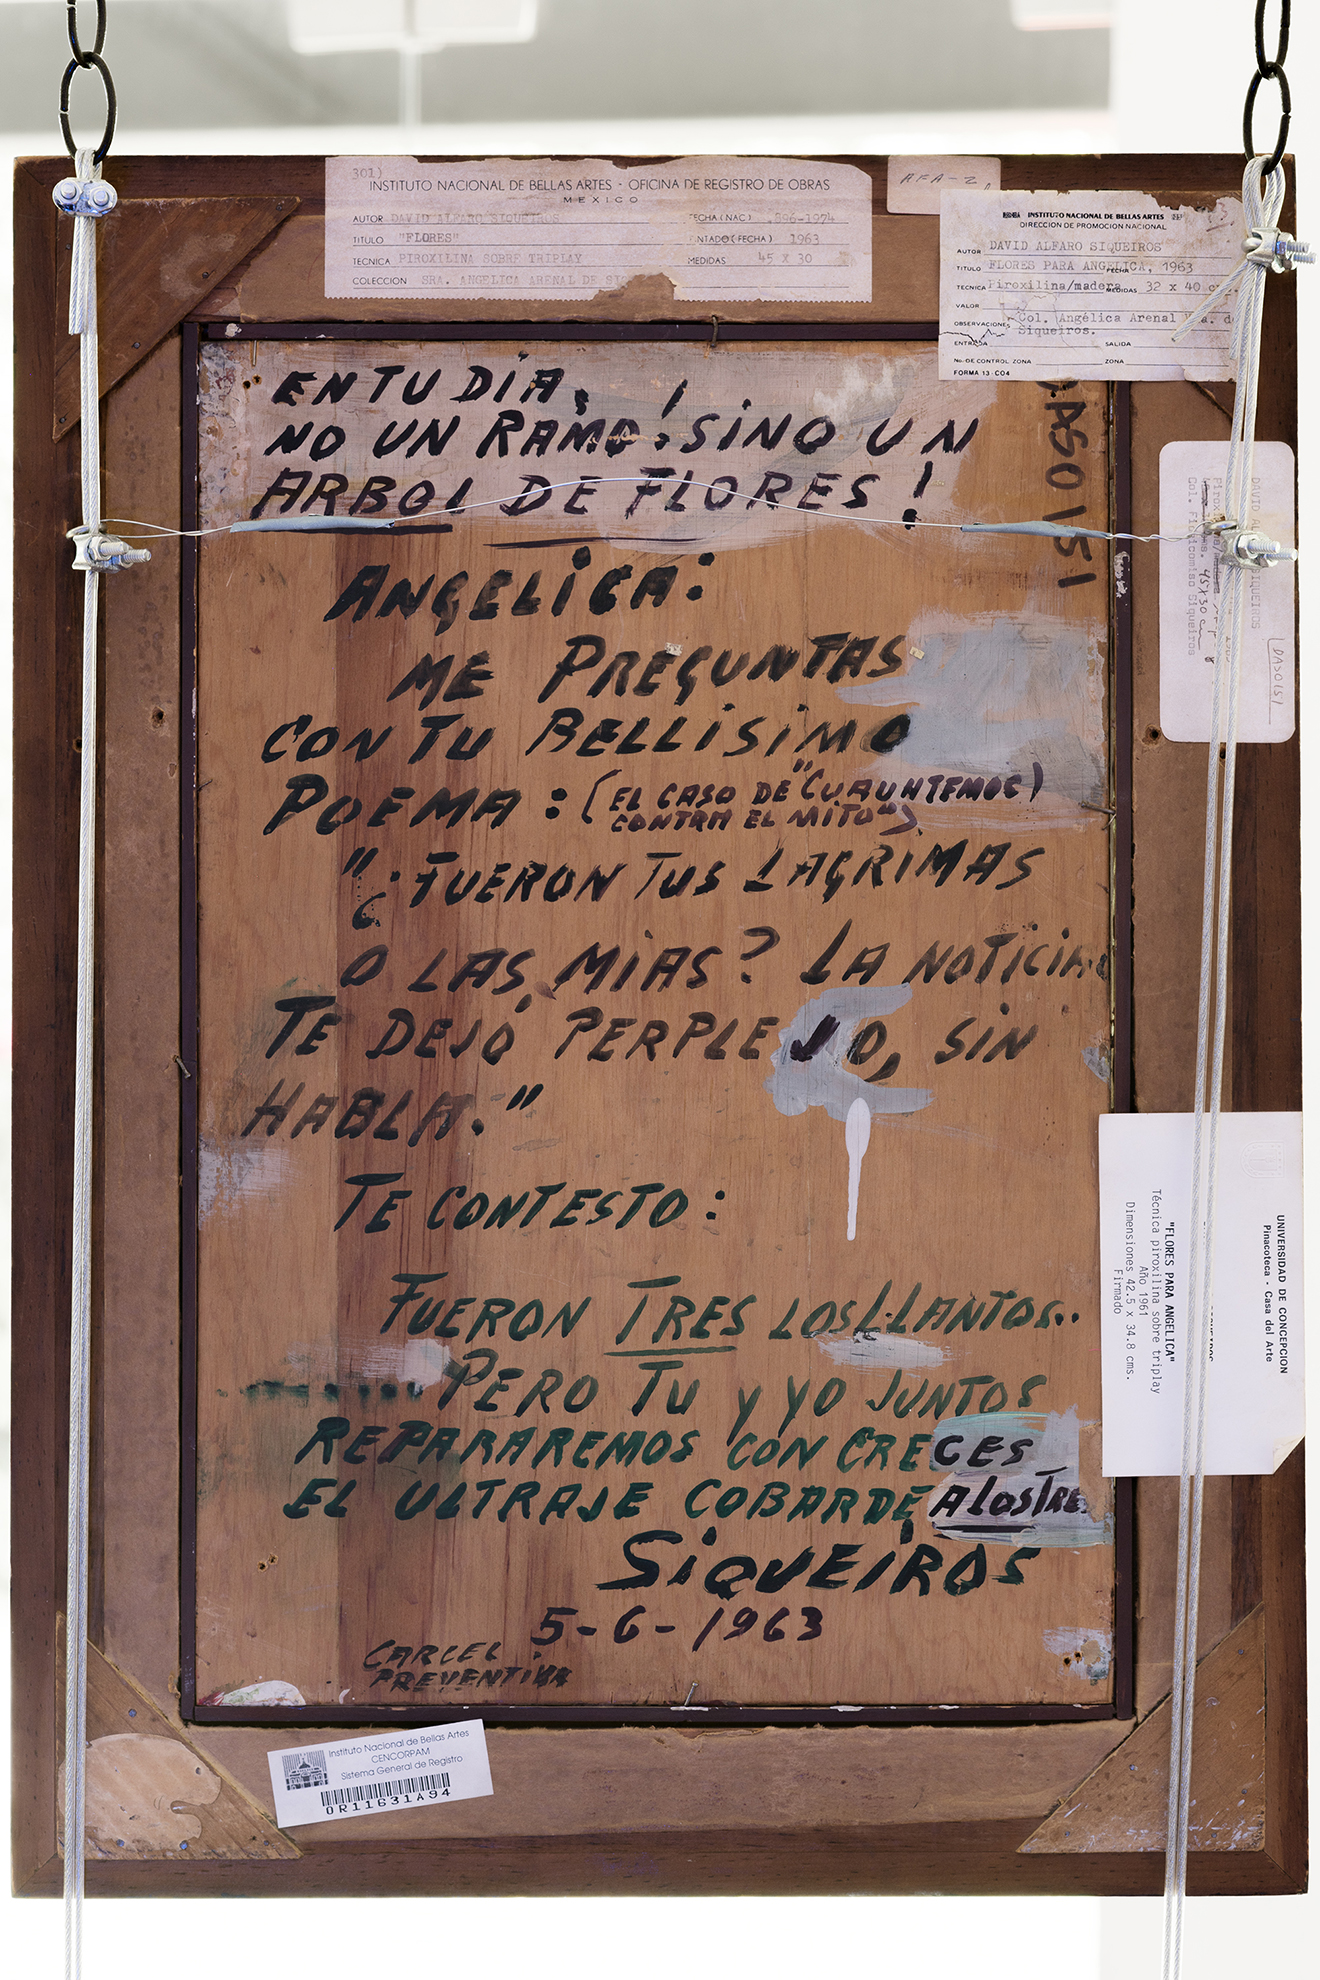 301)
INSTITUTO NACIONAL DE BELLAS ARTES · OFICINA DE REGISTRO DE OBRAS
MEXICO
AUTOR DAVID ALFARO SIQUEIROS FECHA (NAC) .896-1974
TITULO "FLORES" NTADO (FECHA) 1963
TECNICA PIROXILINA SOBRE TRIPLAY MEDIDAS 45 X 30
COLECCION SRA. ANGELICA ARENAL DE
AFA-2
INSTITUTO NACIONAL DE BELLAS ARTES
DIRECCION DE PROMOCION NACIONAL
AUTOR DAVID ALFARO SIQUEIROS
TITULO FLORES PARA ANGELICA, 1963 FECHA
TECNICA Piroxilina/madera MEDIDAS 32 x 40
VALOR
OBSERVACIONES Col. Angélica Arenal
Siqueiros.
ENTRADA SALIDA
No. DE CONTROL ZONA ZONA
FORMA 13-CO4
EN TU DIA,
NO UN RAMO! SINO UN
ARBOL DE FLORES!
ANGELICA:
ME PREGUNTAS
CON TU BELLISIMO
POEMA: (EL CASO DE "CUAUHTEMOC)
CONTRA EL MITO")
"¿FUERON TUS LAGRIMAS
O LAS MIAS? LA NOTICIA
TE DEJÓ PERPLEJO, SIN
HABLA."
TE CONTESTO:
FUERON TRES LOS LLANTOS..
PERO TU y yO JUNTOS
REPARAREMOS CON CRECES
EL ULTRAJE COBARDE A LOS TRES
SIQUEIROS
5-6-1963
CARCEL
PREVENTIVA
DASO151
DAVID SIQUEIROS
45x30 cm
Col. Fideicomiso Siqueiros
DASO151
UNIVERSIDAD DE CONCEPCION
Pinacoteca - Casa del Arte
"FLORES PARA ANGELICA"
Técnica piroxilina sobre triplay
Año 1961
Dimensiones 42.5 x 34.8 cms.
Firmado
Instituto Nacional de Bellas Artes
CENCORPAM
Sistema General de Registro
0R11631A94